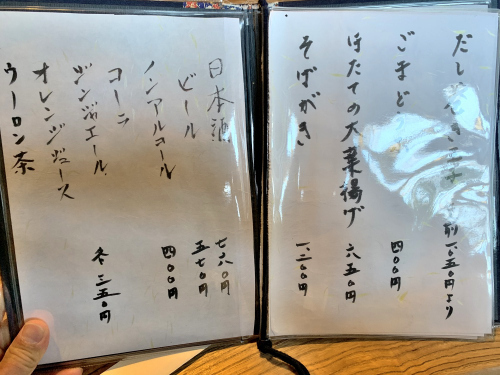 だし 前一〇五〇円より
ごまど 四〇〇円
ほたての大葉揚げ 六五〇円
そばがき 一、二〇〇円
日本酒 七六〇円
ビール 五七〇円
ノンアルコール 四〇〇円
コーラ
ジンジャエール
オレンジジュース 各三五〇円
ウーロン茶